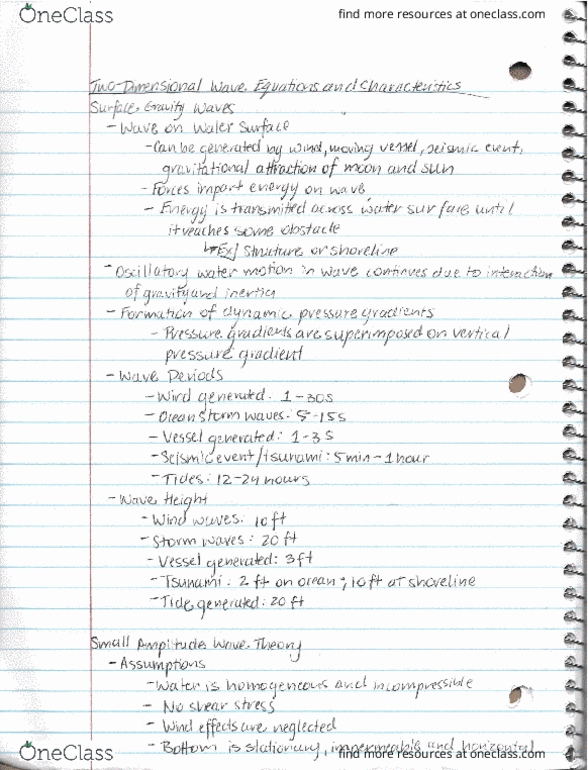 OneClass
find more resources at oneclass.com
Two-Dimensional Wave Equations and Characteristics
Surface Gravity Waves
- Wave on Water Surface
- Can be generated by wind, moving vessel, seismic event,
gravitational attraction of moon and sun
- Forces impart energy on wave
- Energy is transmitted across water surface until
it reaches some obstacle
↳ Ex/ structure or shoreline
- Oscillatory water motion in wave continues due to interaction
of gravity and inertia
- Formation of dynamic pressure gradients
- Pressure gradients are superimposed on vertical
pressure gradient
- Wave Periods
- Wind generated: 1-30s
- Ocean storm waves: 5-15s
- Vessel generated: 1-3s
- Seismic event/tsunami: 5min-1hour
- Tides: 12-24 hours
- Wave Height
- Wind waves: 10ft
- Storm waves: 20ft
- Vessel generated: 3ft
- Tsunami: 2 ft on ocean; 10ft at shoreline
- Tide generated: 20ft
Small Amplitude Wave Theory
- Assumptions
- Water is homogeneous and incompressible
- No shear stress
- Wind effects are neglected
- Bottom is stationary, impermeable and horizontal
OneClass
find more resources at oneclass.com